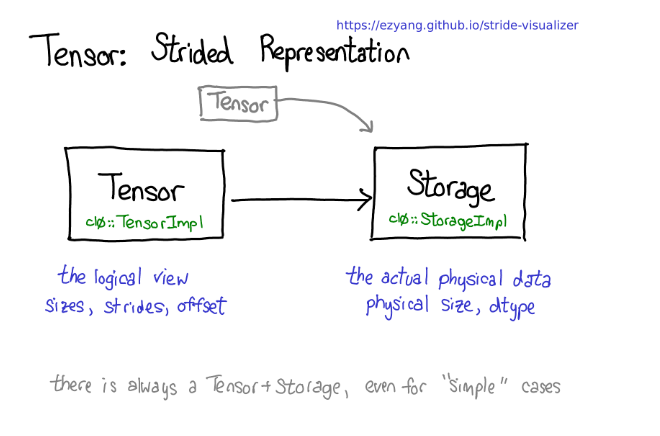 https://ezyang.github.io/stride-visualizer
Tensor: Strided Representation
Tensor
Tensor
c10::TensorImpl
Storage
c10::StorageImpl
the logical view
sizes, strides, offset
the actual physical data
physical size, dtype
there is always a Tensor+Storage, even for "simple" cases